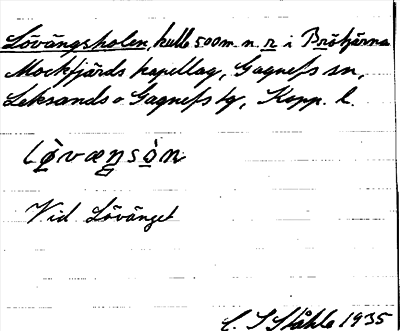 Lövängsholen, kulle 500 m. n. r i Bröttjärna
Mockfjärds kapellag, Gagnefs sn,
Leksands o Gagnefs tg, Kopp. l.
Vid Lövänget
C. I Ståhle 1935